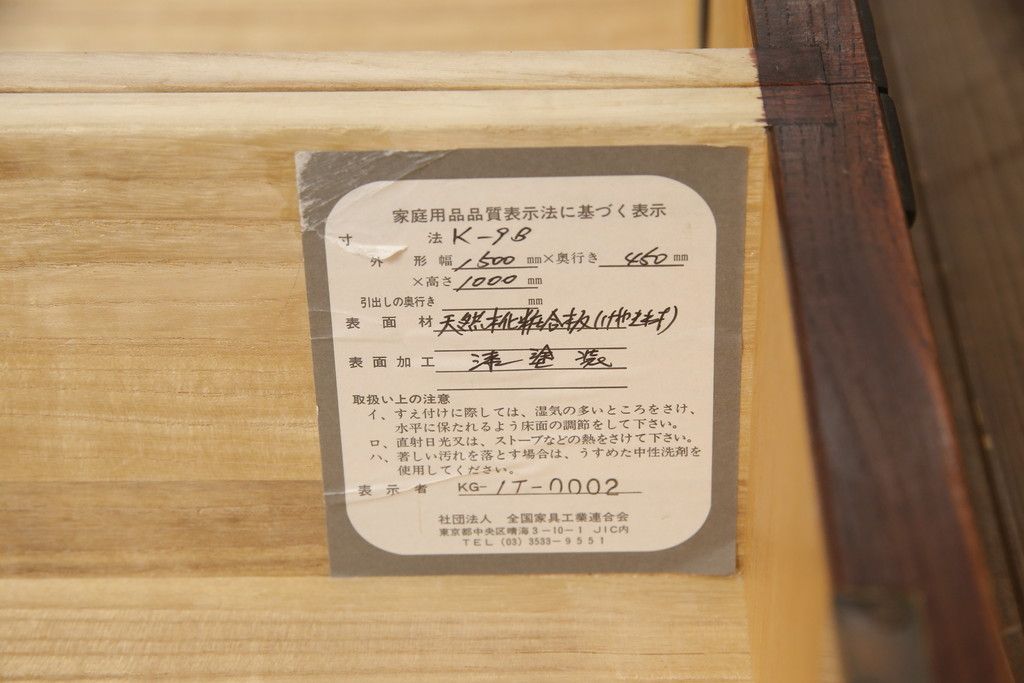 家庭用品品質表示法に基づく表示
寸 法 K-9B
外 形 幅 1500 mm×奥行き 450 mm
×高さ 1000 mm
引出しの奥行き mm
表 面 材 天然木化粧合板(けやき材)
表面加工 漆 塗 装
取扱い上の注意
イ、すえ付けに際しては、湿気の多いところをさけ、
水平に保たれるよう床面の調節をして下さい。
ロ、直射日光又は、ストーブなどの熱をさけて下さい。
ハ、著しい汚れを落とす場合は、うすめた中性洗剤を
使用してください。
表 示 者 KG-IT-0002
社団法人 全国家具工業連合会
東京都中央区晴海3-10-1 JIC内
TEL (03) 3533-9551